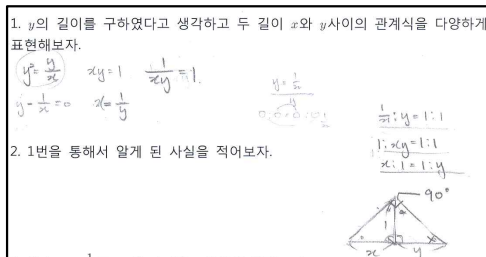 1. y의 길이를 구하였다고 생각하고 두 길이 x와 y사이의 관계식을 다양하게
표현해보자.
y²=y/x xy=1 1/xy=1.
y-1/x=0 x=1/y
y=1/x
1/x:y=1:1
1:xy=1:1
x:1=1:y
2. 1번을 통해서 알게 된 사실을 적어보자.
90°
1
x y